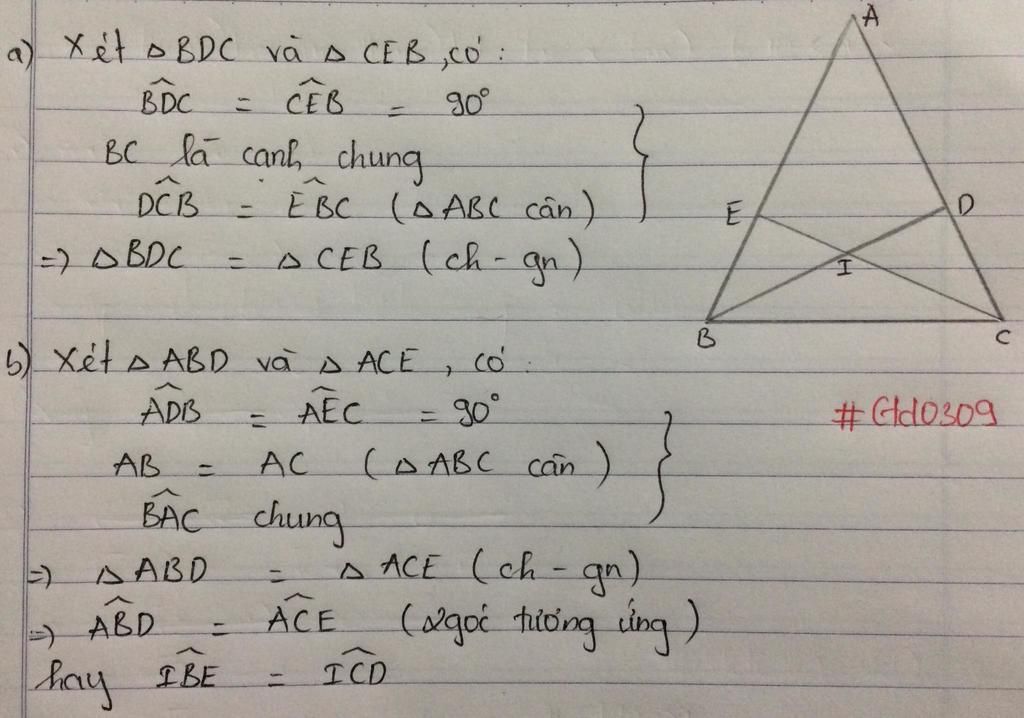 a) Xét △BDC và △ CEB, có:
B̂DC = ĈEB = 90°
BC là cạnh chung
D̂CB = ÊBC (△ABC cân)
=> △BDC = △CEB (ch - gn)
b) Xét △ABD và △ ACE, có:
ÂDB = ÂEC = 90°
AB = AC (△ABC cân)
B̂AC chung
=> △ABD = △ACE (ch - gn)
=> ÂBD = ÂCE (2góc tương ứng)
hay ÎBE = ÎCD
A
E D
I
B C
#Gtd0309